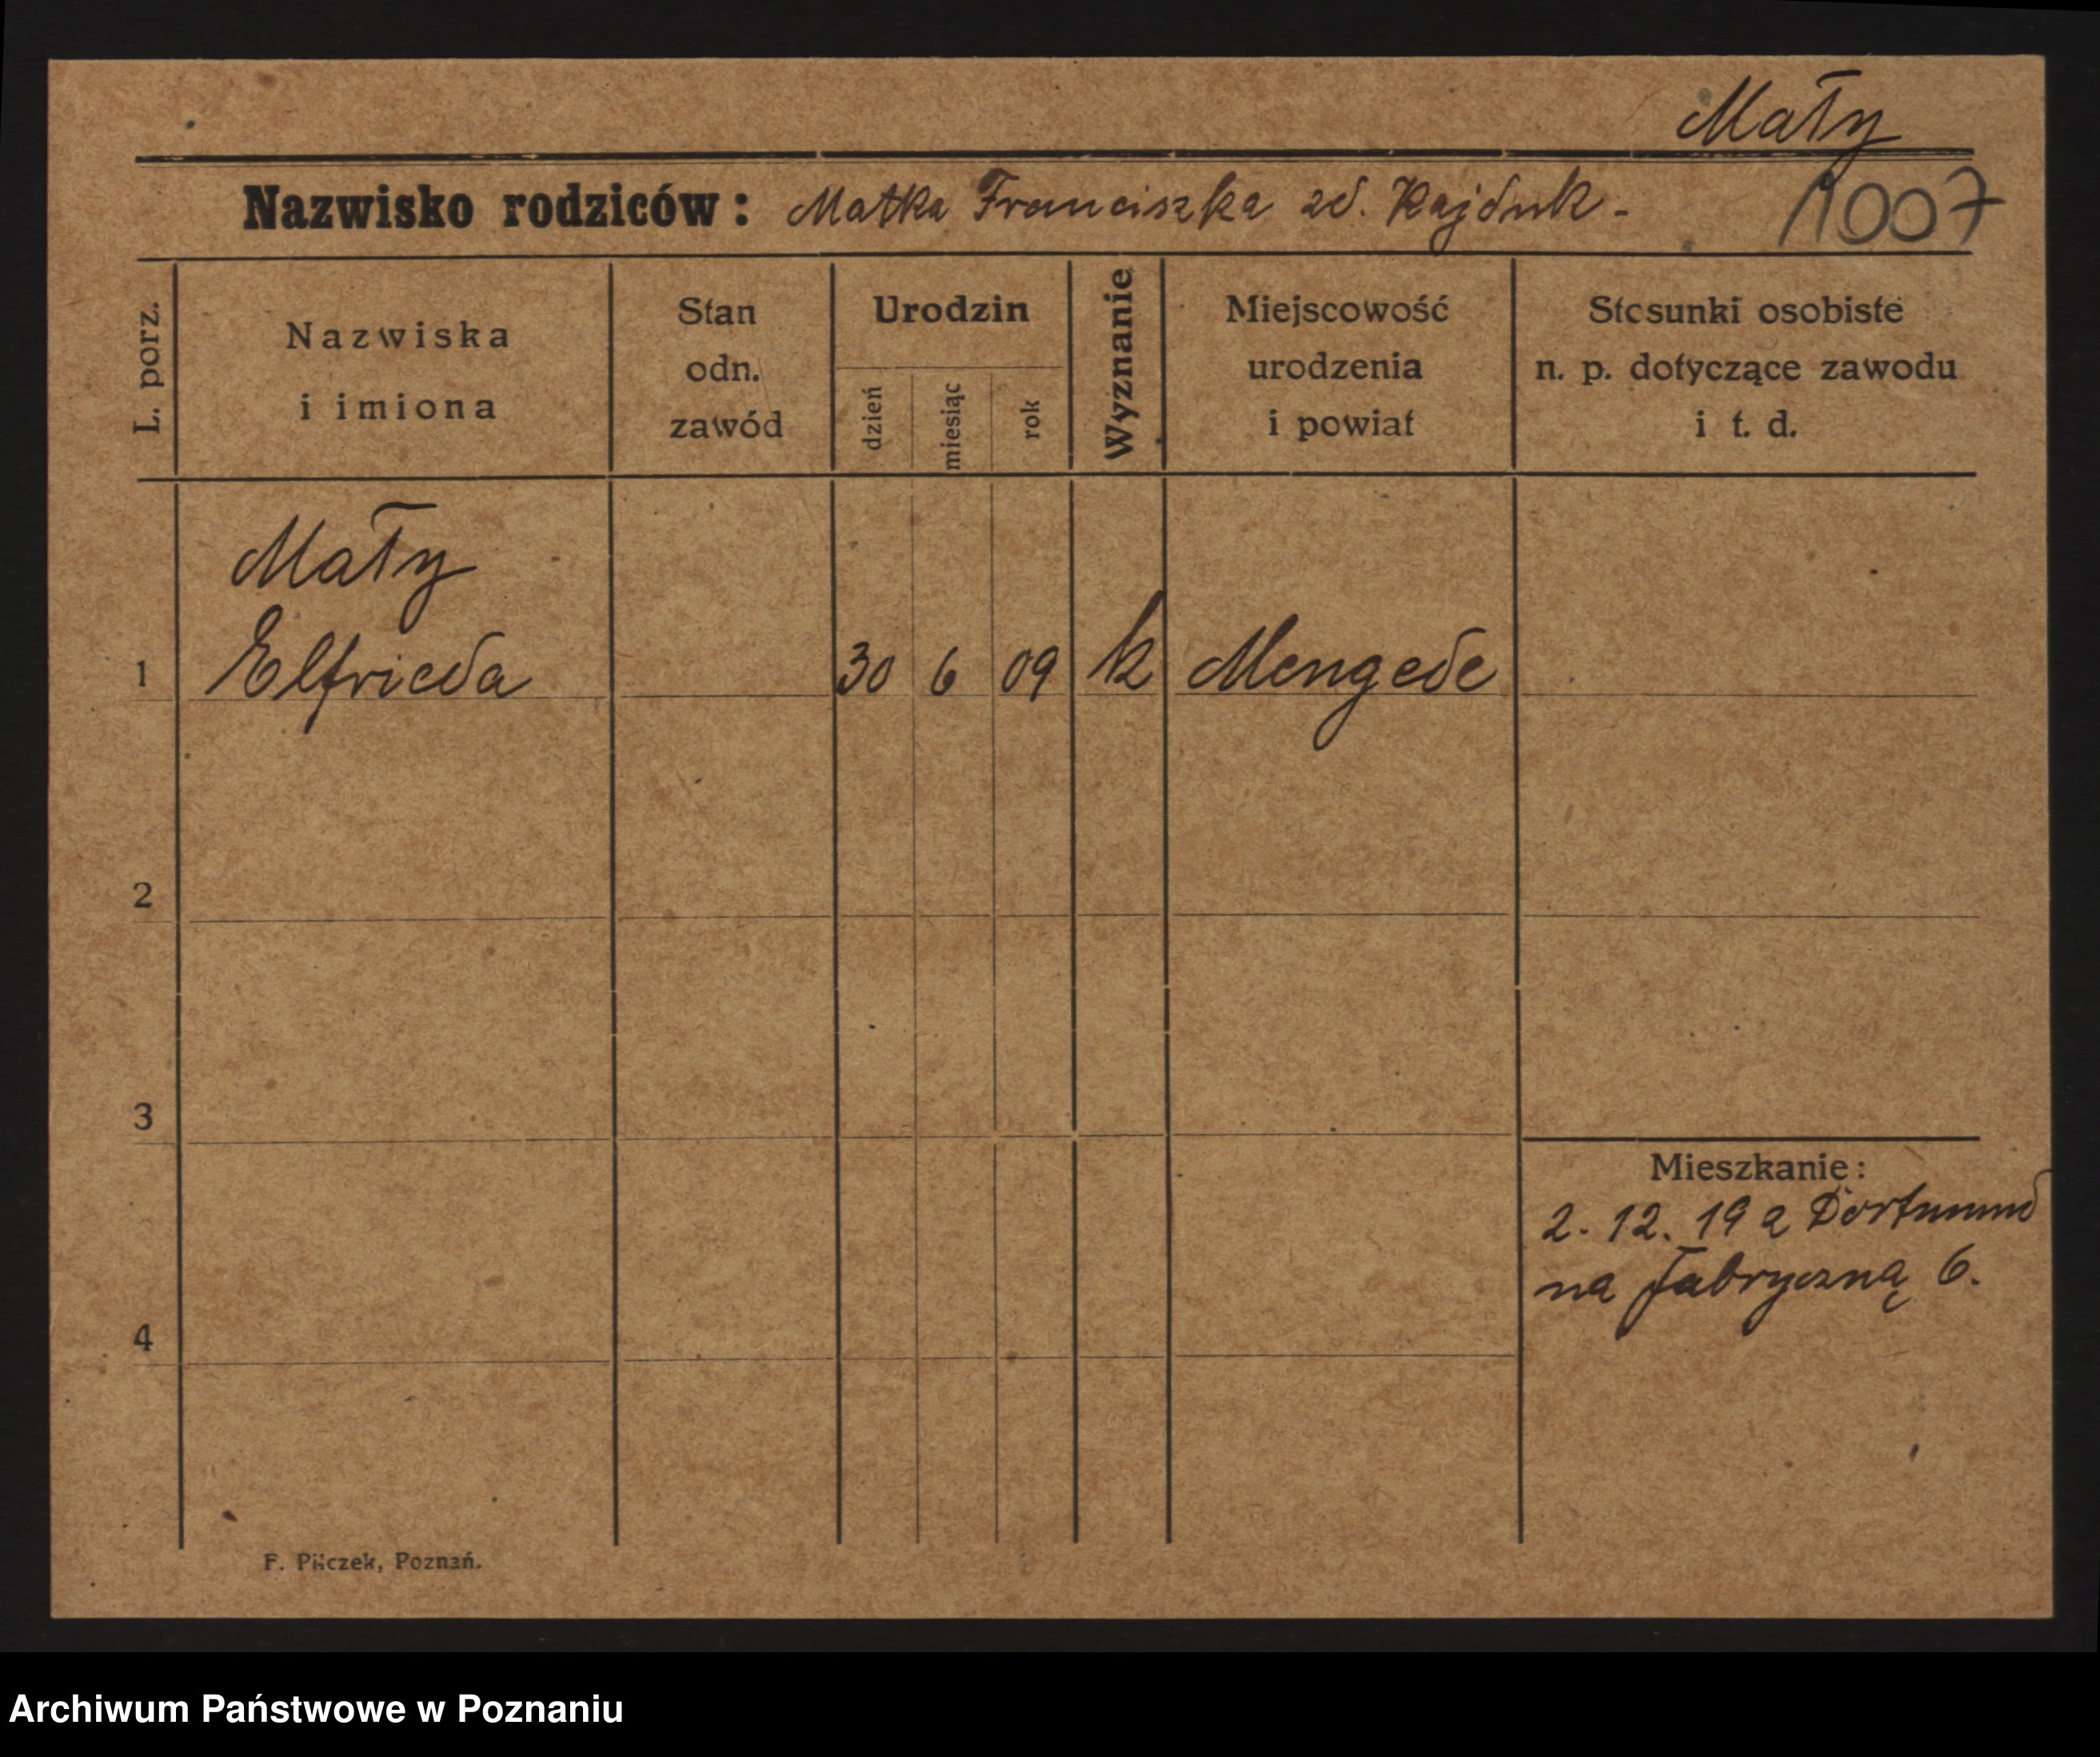 Mały
Nazwisko rodziców: Matka Franciszka zd. Kajduk -
1007
L. porz.
Nazwiska
i imiona
Stan
odn.
zawód
Urodzin
dzień
miesiąc
rok
Wyznanie
Miejscowość
urodzenia
i powiat
Stosunki osobiste
n. p. dotyczące zawodu
i t. d.
Mały
1 Elfrieda 30 6 09 k Mengede
2
3
Mieszkanie:
2. 12. 19 z Dortmund
na Fabryczną 6.
4
F. Pilczek, Poznań.
Archiwum Państwowe w Poznaniu